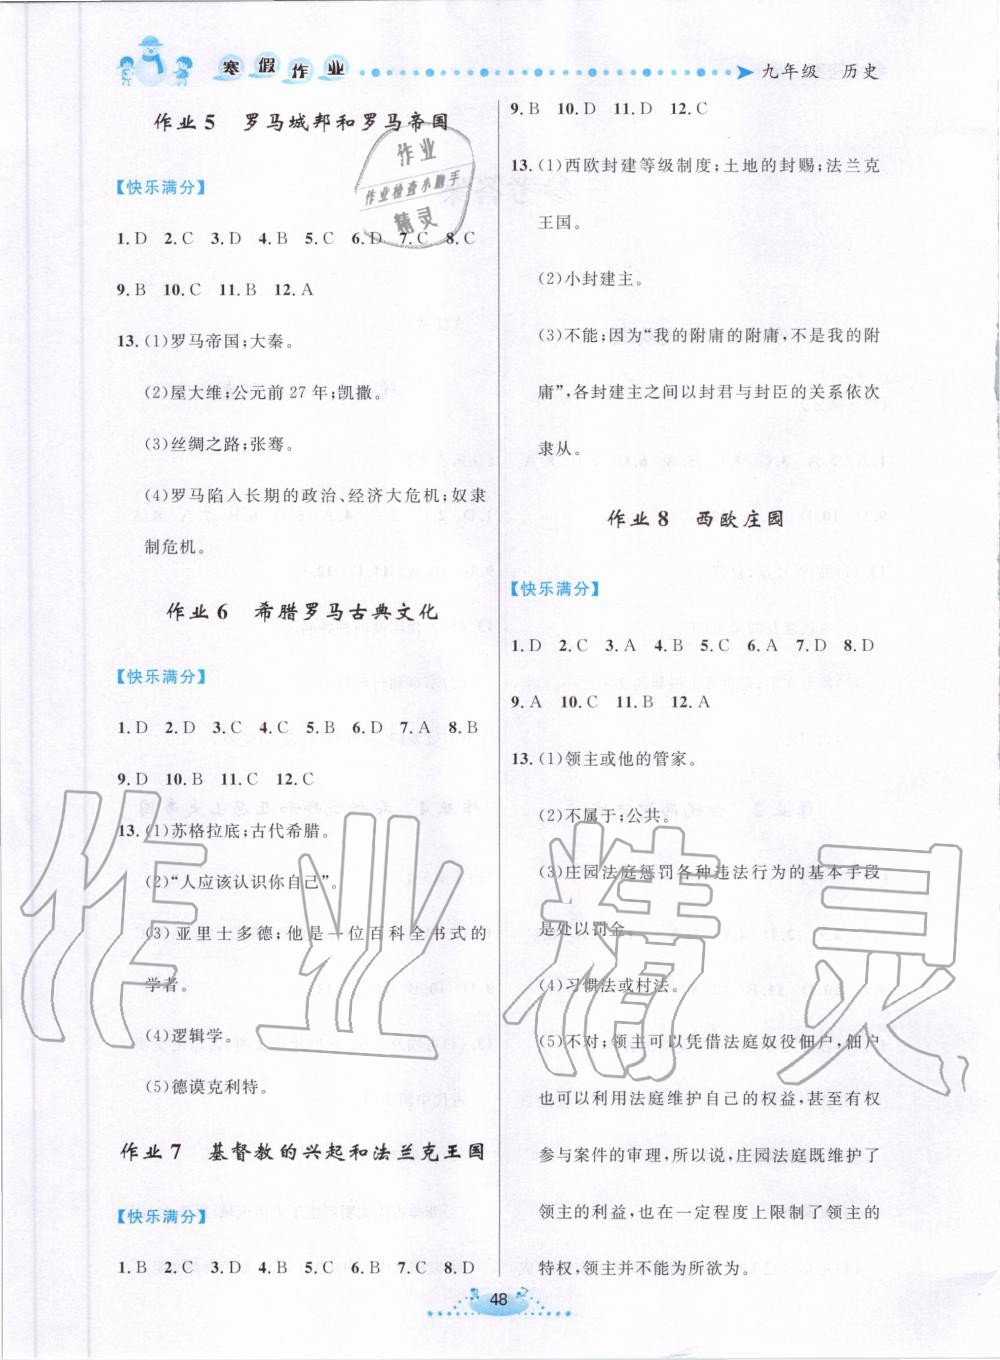 寒假作业
九年级 历史
作业5 罗马城邦和罗马帝国
【快乐满分】
1. D 2. C 3. D 4. B 5. C 6. D 7. C 8. C
9. B 10. C 11. B 12. A
13. (1)罗马帝国;大秦。
(2)屋大维;公元前 27 年;凯撒。
(3)丝绸之路;张骞。
(4)罗马陷入长期的政治、经济大危机;奴隶
制危机。
作业6 希腊罗马古典文化
【快乐满分】
1. D 2. D 3. C 4. C 5. B 6. D 7. A 8. B
9. D 10. B 11. C 12. C
13. (1)苏格拉底;古代希腊。
(2)“人应该认识你自己”。
(3)亚里士多德;他是一位百科全书式的
学者。
(4)逻辑学。
(5)德谟克利特。
作业7 基督教的兴起和法兰克王国
【快乐满分】
1. B 2. C 3. D 4. B 5. C 6. B 7. C 8. D
9. B 10. D 11. D 12. C
13. (1)西欧封建等级制度;土地的封赐;法兰克
王国。
(2)小封建主。
(3)不能;因为“我的附庸的附庸,不是我的附
庸”,各封建主之间以封君与封臣的关系依次
隶从。
作业8 西欧庄园
【快乐满分】
1. D 2. C 3. A 4. B 5. C 6. A 7. D 8. D
9. A 10. C 11. B 12. A
13. (1)领主或他的管家。
(2)不属于;公共。
(3)庄园法庭惩罚各种违法行为的基本手段
是处以罚金。
(4)习惯法或村法。
(5)不对;领主可以凭借法庭奴役佃户,佃户
也可以利用法庭维护自己的权益,甚至有权
参与案件的审理,所以说,庄园法庭既维护了
领主的利益,也在一定程度上限制了领主的
特权,领主并不能为所欲为。
48
作业
作业检查小助手
精灵
作业精灵